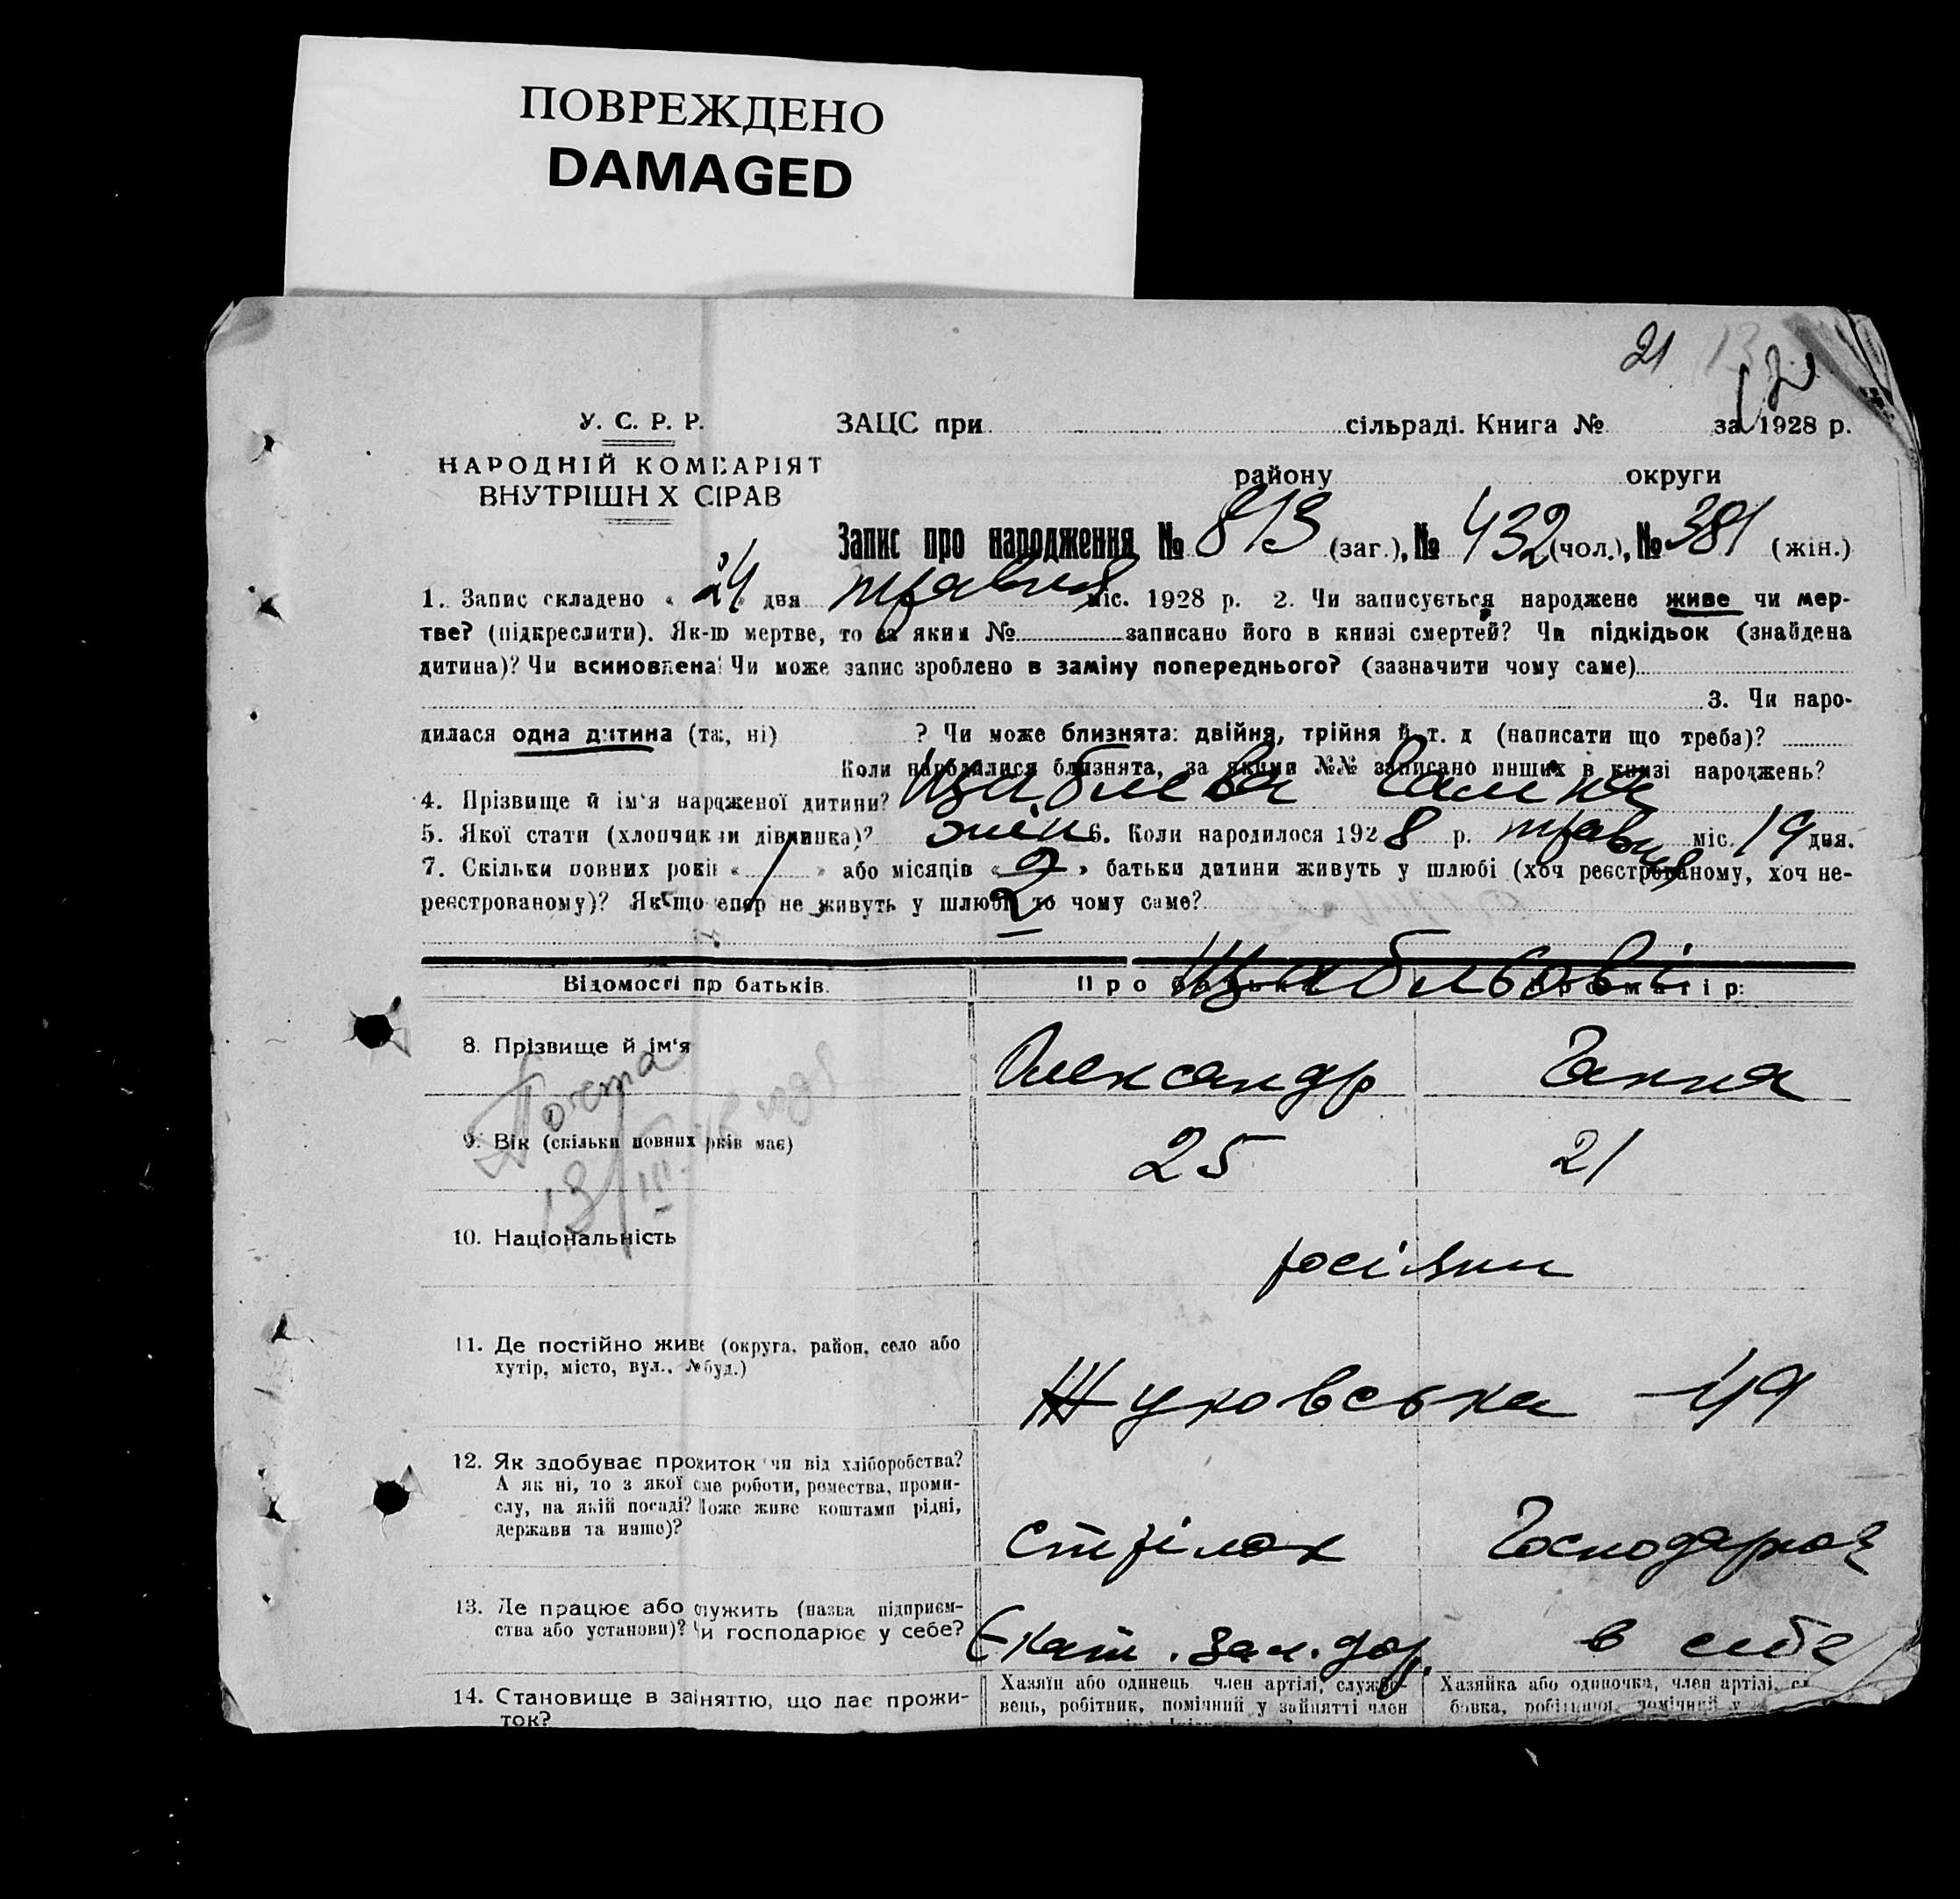 ПОВРЕЖДЕНО
DAMAGED
21 13
12
У. С. Р. Р.
НАРОДНІЙ КОМІСАРІЯТ
ВНУТРІШН Х СПРАВ
ЗАЦС при сільраді. Книга № за 1928 р.
району округи
Запис про народження № 813 (заг.), № 432 (чол.), № 381 (жін.)
1. Запис складено « 24 » дня травня міс. 1928 р. 2. Чи записується народжене живе чи мер-
тве? (підкреслити). Як-що мертве, то за яким № записано його в книзі смертей? Чи підкідьок (знайдена
дитина)? Чи всиновлена? Чи може запис зроблено в заміну попереднього? (зазначити чому саме)
3. Чи наро-
дилася одна дитина (так, ні) ? Чи може близнята: двійня, трійня й т. д (написати що треба)?
Коли народилися близнята, за якими №№ записано инших в книзі народжень?
4. Прізвище й ім'я народженої дитини? Галина
5. Якої стати (хлопчик чи дівчинка)? жін. 6. Коли народилося 1928 р. травня міс. 19 дня.
7. Скільки повних років « » або місяців « 2 » батьки дитини живуть у шлюбі (хоч реєстрованому, хоч не-
реєстрованому)? Якщо тепер не живуть у шлюбі, то чому саме?
Відомості про батьків. Про батька Про матір:
8. Прізвище й ім'я Олександр Ганна
9. Вік (скільки повних років має) 25 21
13/III
10. Національність росіяни
11. Де постійно живе (округа, район, село або
хутір, місто, вул., № буд.) Жуковська 49
12. Як здобуває прожиток чи від хліборобства?
А як ні, то з якої саме роботи, ремества, проми-
слу, на якій посаді? Може живе коштами рідні,
держави та инше)? стрілок Господарює
13. Де працює або служить (назва підприєм-
ства або установи)? Чи господарює у себе? Єкат. зал. дор. в себе
14. Становище в заняттю, що дає прожи-
ток?
Хазяїн або одинець член артілі, службо-
вець, робітник, помічний у зайнятті член
Хазяйка або одиночка, член артілі, сл
бовка, робітниця, помічний у